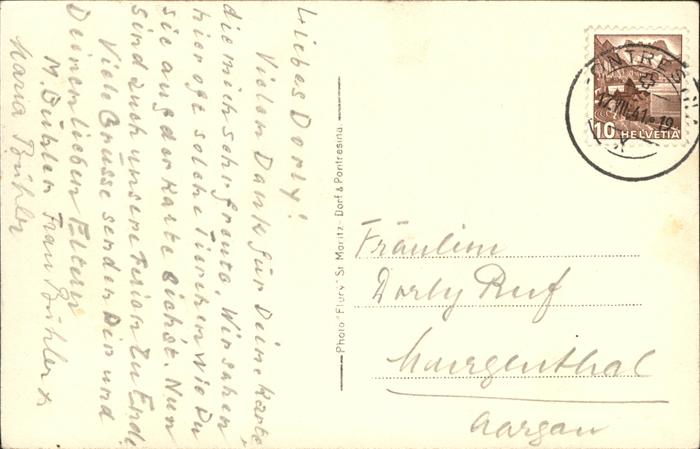 Liebes Dorly!
Vielen Dank für Deine Karte,
die mich sehr freute. Wir sahen
hier oft solche Tierchen wie Du
sie auf der Karte siehst. Nun
sind auch unsere Ferien zu Ende.
Viele Grüsse senden Dir und
Deinen lieben Eltern
M. Bühler Frau Bühler
Maria Bühler
Photo "Flury" St. Moritz - Dorf & Pontresina.
PONTRESINA
12.VIII.41.-19
10 HELVETIA
Fräulein
Dorly Ruf
Murgenthal
Aargau